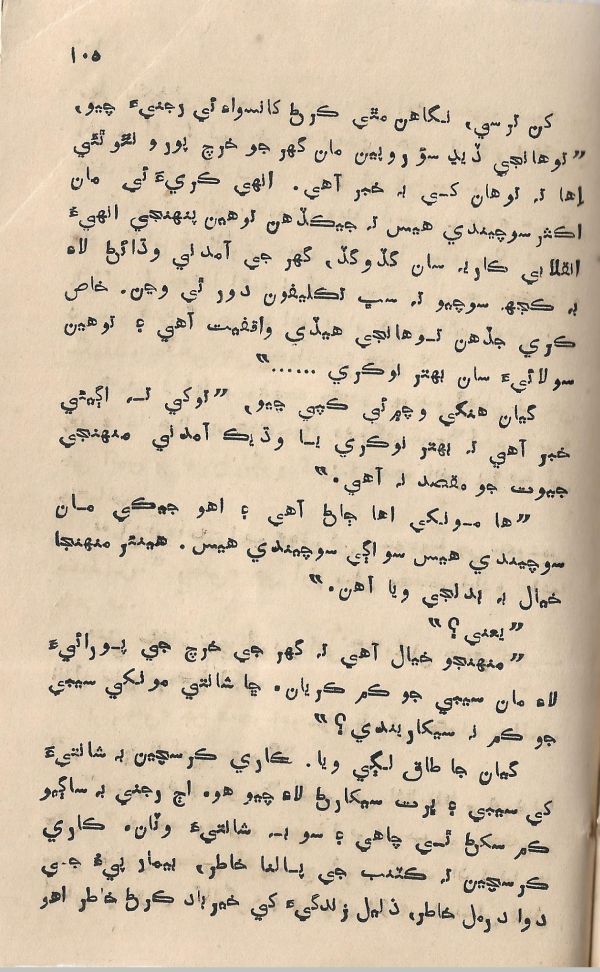 ١٠٥
کن ترسي، نگاهن مٿي کرڻ کانسواءِ ئي رجنيءَ چيو،
”توهانجي ڏيڍ سؤ روپين مان گهر جو خرچ پورو نٿو ٿئي
اها تہ توهان کي بہ خبر آهي. انهي ڪريءَ ئي مان
اڪثر سوچيندي هيس تہ جيڪڏهن توهين پنهنجي انهيءَ
انقلابي ڪاريہ سان گڏوگڏ، گهر جي آمدني وڌائڻ لاءِ
بہ ڪجهہ سوچيو تہ سڀ تڪليفون دور ٿي وڃن. خاص
ڪري جڏهن توهانجي هيڏي واقفيت آهي ۽ توهين
سولائيءَ سان بهتر نوڪري ......“
گيان هنکي وچ ۾ ئي ڪپي چيو، ”توکي تہ اڳيئي
خبر آهي تہ بهتر نوڪري يا وڌيڪ آمدني منهنجي
جيوت جو مقصد نہ آهي.“
”ها مونکي اها ڄاڻ آهي ۽ اهو جيڪي مان
سوچيندي هيس سو اڳي سوچيندي هيس. هينئر منهنجا
خيال بہ بدلجي ويا آهن.“
”يعني؟“
”منهنجو خيال آهي تہ گهر جي خرچ جي پورائيءَ
لاءِ مان سيبي جو ڪم ڪريان. ڇا شانتي مونکي سيبي
جو ڪم نہ سيکاريندي؟“
گيان جا طاق لڳي ويا. ڪاري ڪرسچين بہ شانتيءَ
کي سيبي ۽ ڀرت سيکارڻ لاءِ چيو هو. اڄ رجني بہ ساڳيو
ڪم سکڻ ٿي چاهي ۽ سو بہ شانتيءَ وٽان. ڪاري
ڪرسچين تہ ڪٽنب جي پالنا خاطر، بيمار پيءُ جي
دوا درمل خاطر، ذليل زندگيءَ کي خيرباد ڪرڻ خاطر اهو